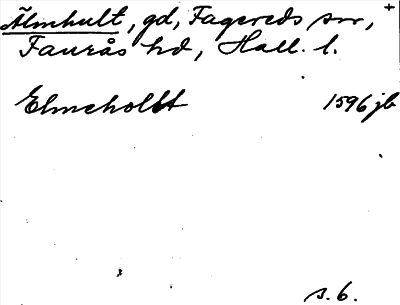 Älmhult, gd, Fagereds sn, +
Faurås hd, Hall. l.
Elmeholtt 1596 jb
s. 6.